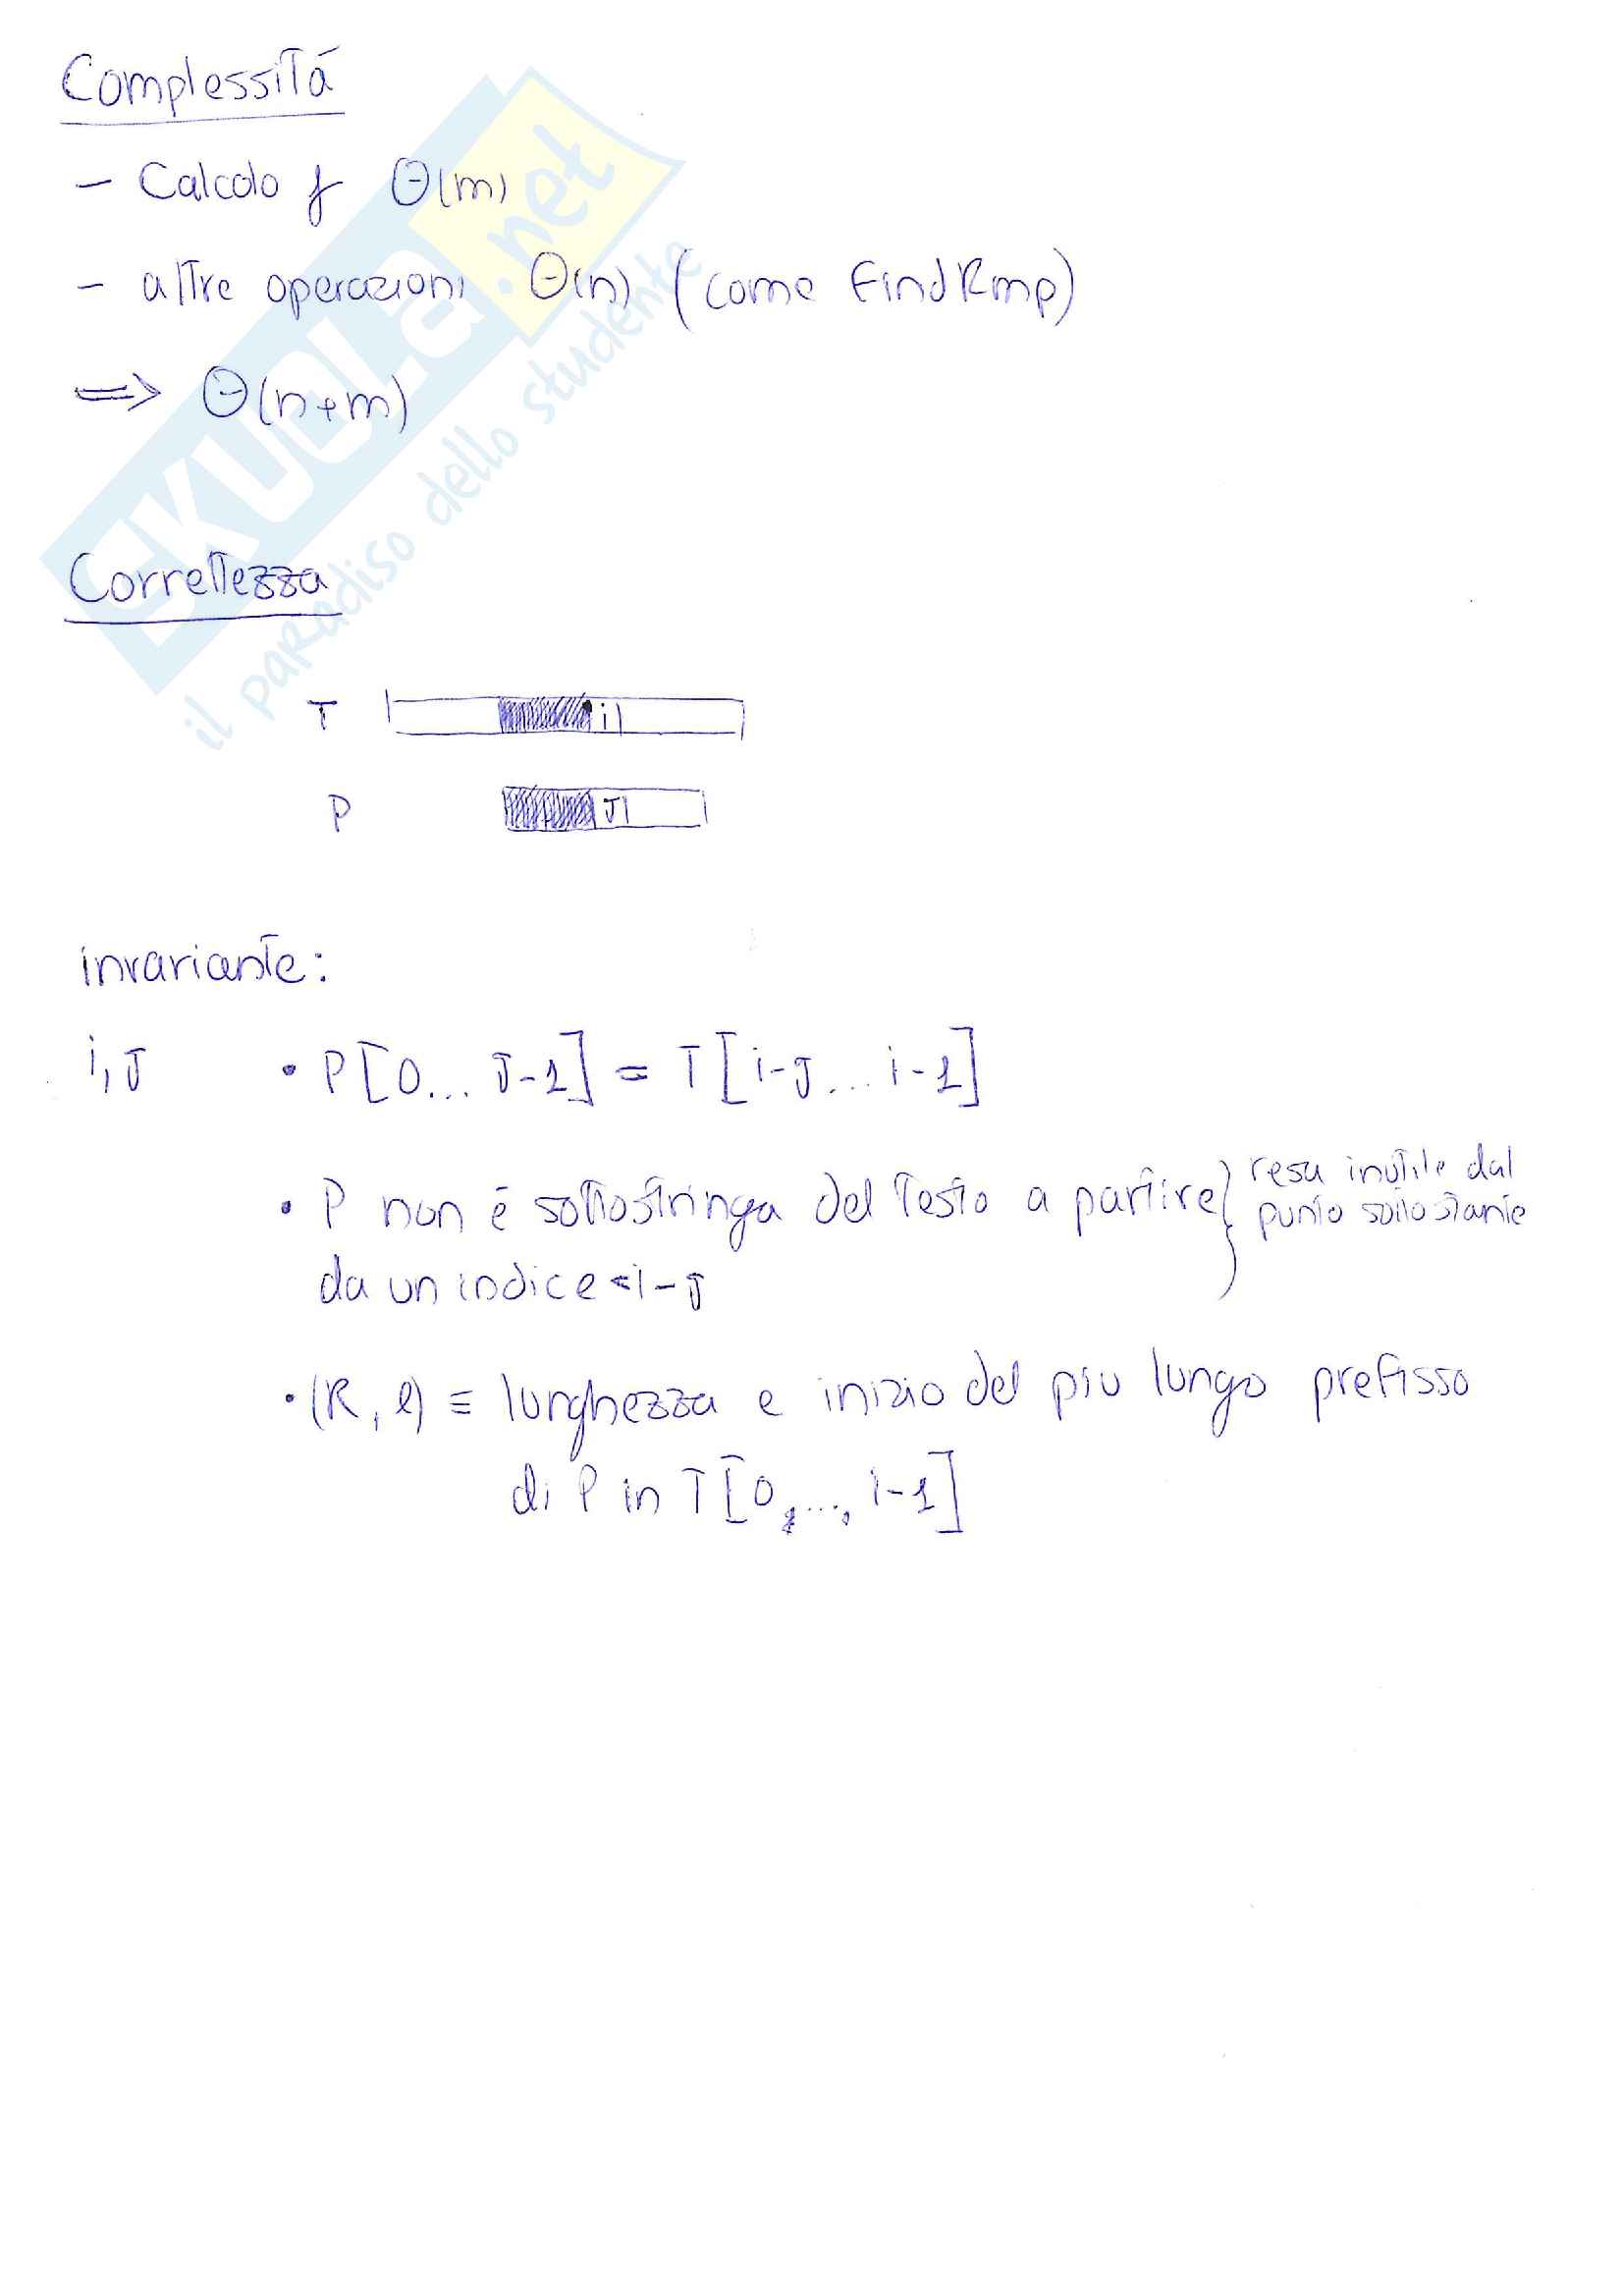 Complessitá
- Calcolo f Θ(m)
- altre operazioni Θ(n) (come FindKmp)
⇒ Θ(n+m)
SKUOLa.net
il paradiso dello studente
Correttezza
T i
P J
invariante:
i,J • P[0... J-1] = T[i-J... i-1]
• P non é sottostringa del testo a partire } resa inutile dal
punto sottostante
da un indice < i-J
• (K, l) ≡ lunghezza e inizio del piu lungo prefisso
di P in T[0,..., i-1]